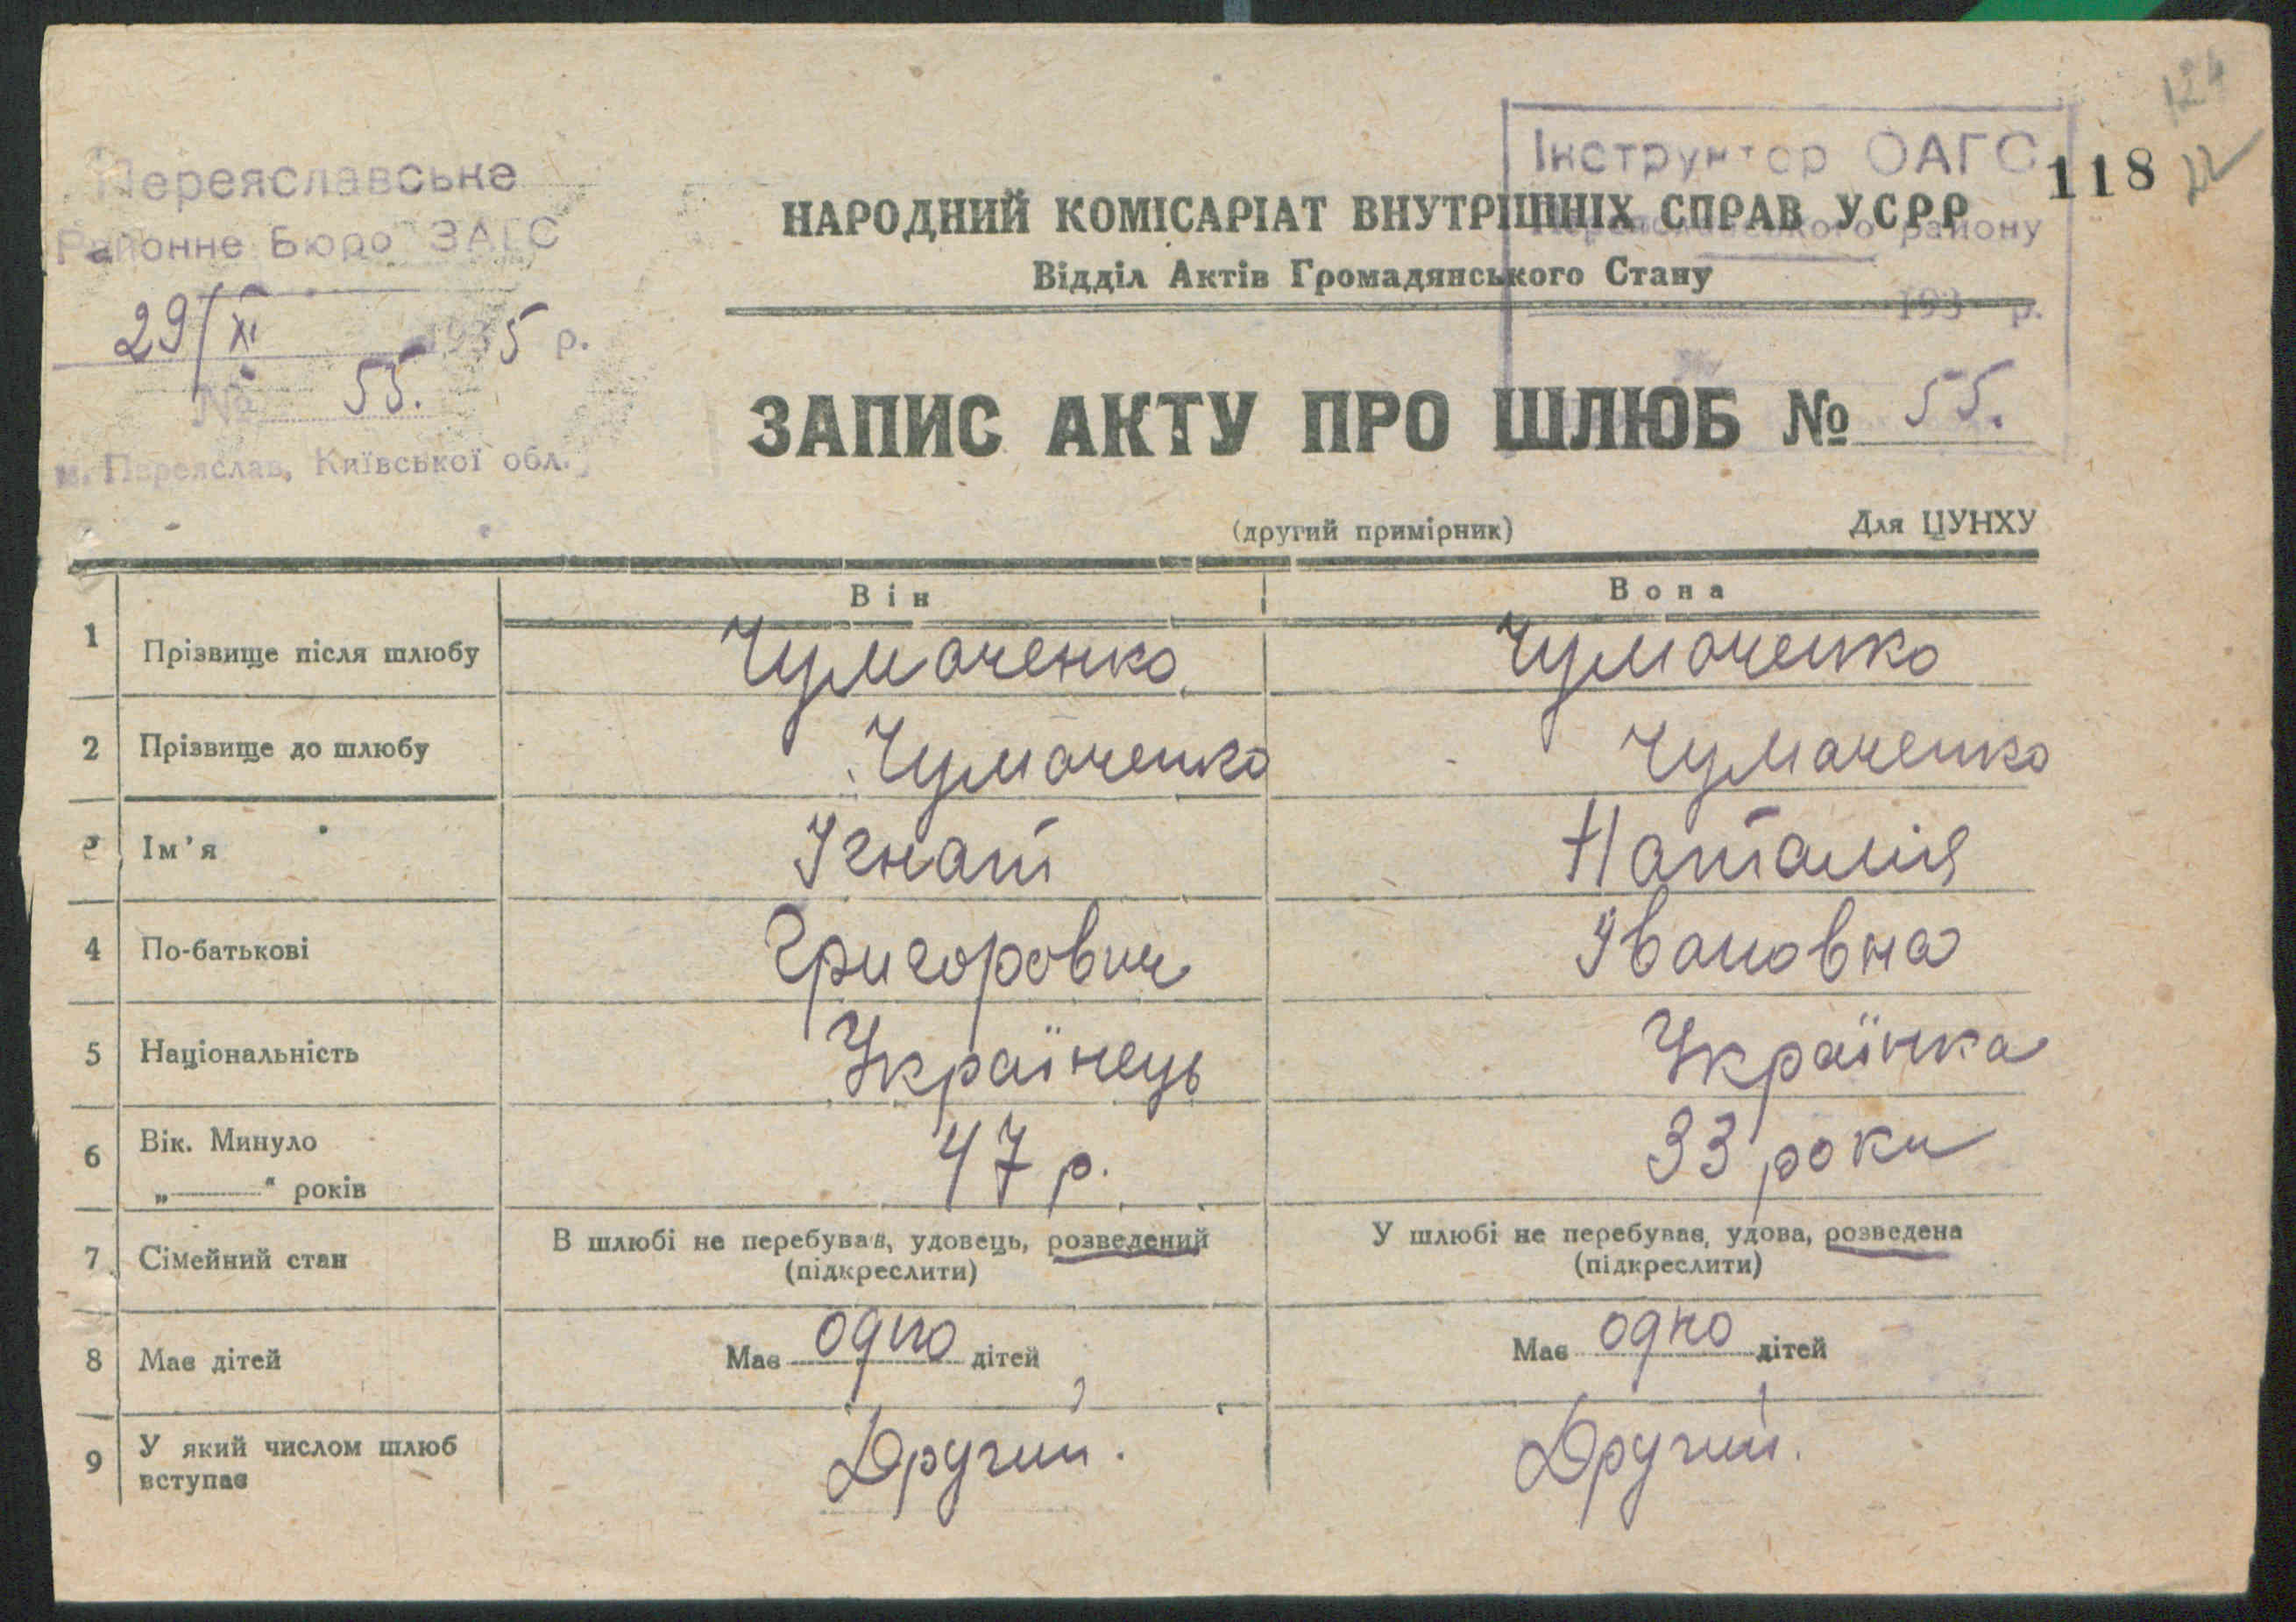 Переяславське
Районне Бюро ЗАГС
29/XI 1935 р.
№ 55.
м. Переяслав, Київської обл.
Інструктор ОАГС
Переяславського району
193 р.
118
22
НАРОДНИЙ КОМІСАРІАТ ВНУТРІШНІХ СПРАВ УСРР
Відділ Актів Громадянського Стану
ЗАПИС АКТУ ПРО ШЛЮБ № 55.
(другий примірник) Для ЦУНХУ
Він Вона
1 Прізвище після шлюбу Чумаченко Чумаченко
2 Прізвище до шлюбу Чумаченко Чумаченко
3 Ім'я Ігнат Наталія
4 По-батькові Григорович Івановна
5 Національність Українець Українка
6 Вік. Минуло 47 р. 33 роки
„——“ років
7 Сімейний стан В шлюбі не перебував, удовець, розведений У шлюбі не перебував, удова, розведена
(підкреслити) (підкреслити)
8 Має дітей Має одно дітей Має одно дітей
9 У який числом шлюб Другий. Другий.
вступає